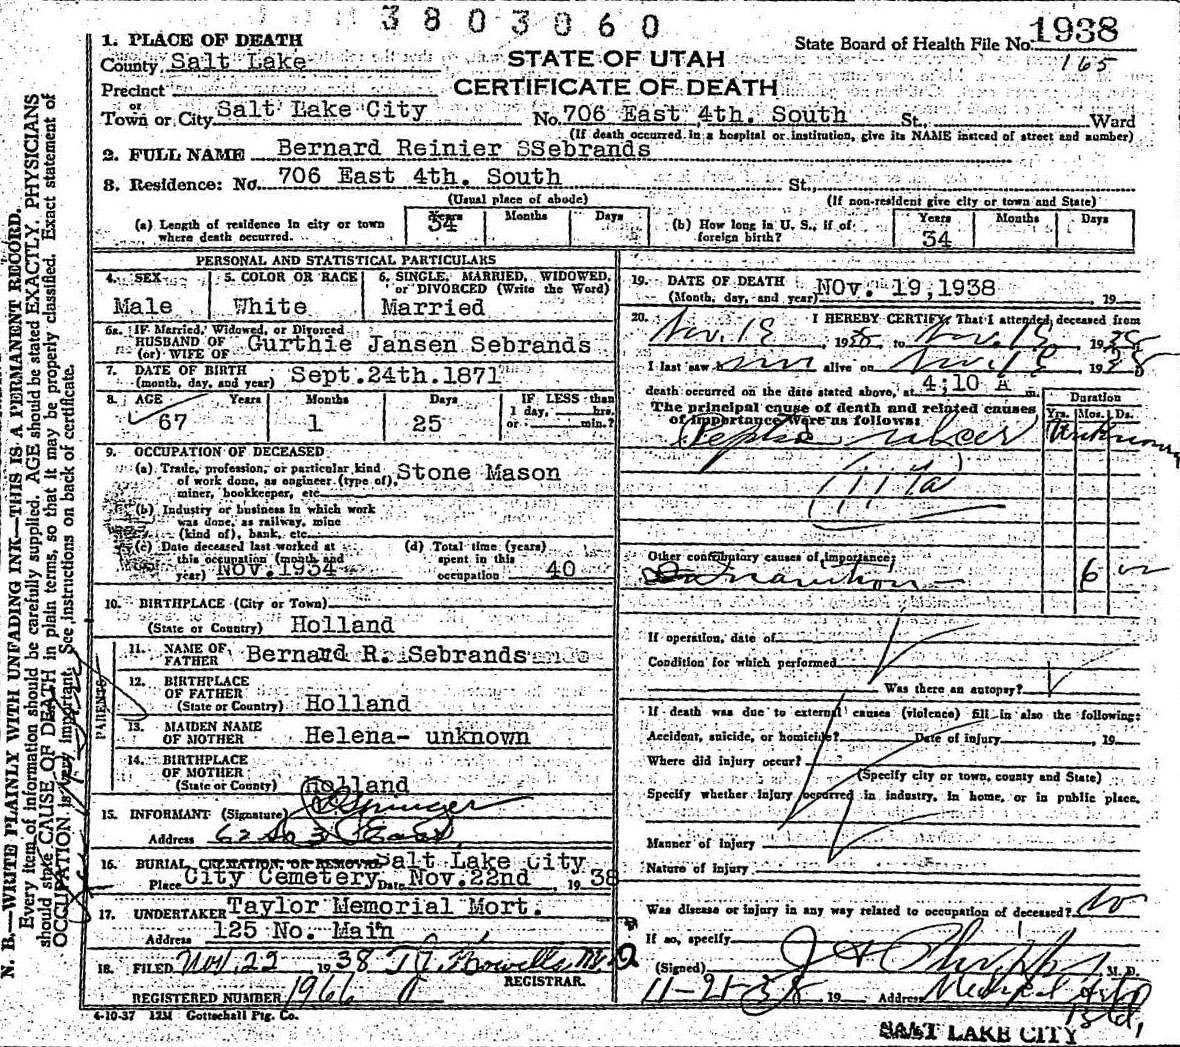 3803060
1. PLACE OF DEATH
State Board of Health File No. 1938
165
County Salt Lake
STATE OF UTAH
Precinct
CERTIFICATE OF DEATH
Town or City Salt Lake City No. 706 East 4th. South St., Ward
(If death occurred in a hospital or institution, give its NAME instead of street and number)
2. FULL NAME Bernard Reinier SSebrands
3. Residence: No. 706 East 4th. South St.,
(Usual place of abode) (If non-resident give city or town and State)
(a) Length of residence in city or town where death occurred. Years 34 Months Days
(b) How long in U. S., if of foreign birth? Years 34 Months Days
PERSONAL AND STATISTICAL PARTICULARS
4. SEX Male
5. COLOR OR RACE White
6. SINGLE, MARRIED, WIDOWED, or DIVORCED (Write the Word) Married
6a. IF Married, Widowed, or Divorced
HUSBAND OF
(or) WIFE OF Gurthie Jansen Sebrands
7. DATE OF BIRTH
(month, day, and year) Sept.24th.1871
8. AGE Years 67 Months 1 Days 25 IF LESS than 1 day, hrs. or min.?
9. OCCUPATION OF DECEASED
(a) Trade, profession, or particular kind of work done, as engineer (type of), miner, bookkeeper, etc. Stone Mason
(b) Industry or business in which work was done, as railway, mine (kind of), bank, etc.
(c) Date deceased last worked at this occupation (month and year) Nov.1934
(d) Total time (years) spent in this occupation 40
10. BIRTHPLACE (City or Town)
(State or Country) Holland
PARENTS
11. NAME OF FATHER Bernard R. Sebrands
12. BIRTHPLACE OF FATHER
(State or Country) Holland
13. MAIDEN NAME OF MOTHER Helena- unknown
14. BIRTHPLACE OF MOTHER
(State or County) Holland
15. INFORMANT (Signature) Springer
Address 62 So 3
16. BURIAL CREMATION, OR REMOVAL Salt Lake City
Place City Cemetery Date Nov.22nd , 1938
17. UNDERTAKER Taylor Memorial Mort.
Address 125 No. Main
18. FILED Nov. 22 1938 T J Howells M.D
REGISTRAR.
REGISTERED NUMBER 1966
4-10-37 12M Gottschall Ptg. Co.
19. DATE OF DEATH
(Month, day, and year) Nov. 19,1938 , 19
20. I HEREBY CERTIFY, That I attended deceased from
Nov. 18, 1938 to Nov. 19, 1938
I last saw him alive on Nov. 18 1938
death occurred on the date stated above, at 4;10 A m.
The principal cause of death and related causes of importance were as follows: Duration
Yrs. Mos. Ds.
Peptic ulcer Unknown
117a
Other contributory causes of importance:
Inanition 6
If operation, date of
Condition for which performed
Was there an autopsy?
If death was due to external causes (violence) fill in also the following:
Accident, suicide, or homicide? Date of injury , 19
Where did injury occur?
(Specify city or town, county and State)
Specify whether injury occurred in industry, in home, or in public place.
Manner of injury
Nature of injury
Was disease or injury in any way related to occupation of deceased? No
If so, specify
(Signed) J H Phipps M. D.
11-21-38 19 Address Medical Arts Bld,
SALT LAKE CITY
N. B.—WRITE PLAINLY WITH UNFADING INK—THIS IS A PERMANENT RECORD.
Every item of information should be carefully supplied. AGE should be stated EXACTLY. PHYSICIANS
should state CAUSE OF DEATH in plain terms, so that it may be properly classified. Exact statement of
OCCUPATION is very important. See instructions on back of certificate.